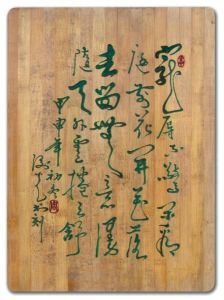 寵辱不驚閑看
庭前花開花落
去留無意漫
隨天外雲捲雲舒
甲申年初冬